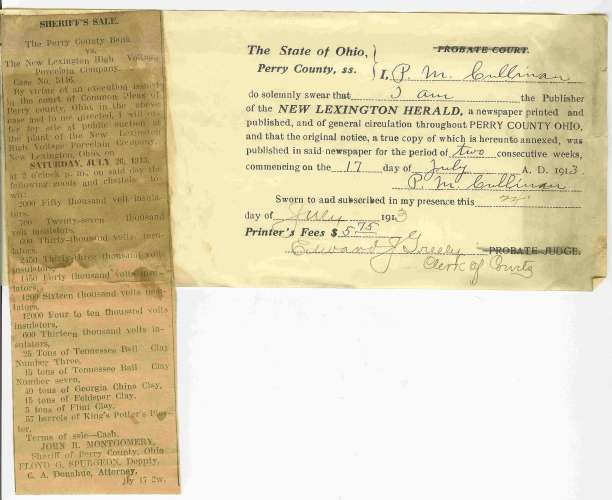 SHERIFF'S SALE.
The Perry County Bank
vs.
The New Lexington High Voltage
Porcelain Company.
Case No.
By virtue of an execution issued
in the court of Common Pleas of
Perry county, Ohio in the above
case and to me directed, I will offer
for sale at public auction at
the plant of the New Lexington
High Voltage Porcelain Company,
New Lexington, Ohio, on
SATURDAY, JULY 26, 1913,
at 2 o'clock p. m. on said day the
following goods and chattels to
wit:
2000 Fifty thousand volt insula-
tors,
700 Twenty-seven thousand
volt insulators,
600 Thirty-thousand volts insu-
lators,
2450 Thirty-three thousand volts
insulators,
Forty thousand volts insu-
lators,
1200 Sixteen thousand volts insu-
lators,
12000 Four to ten thousand volts
insulators,
600 Thirteen thousand volts in-
sulators,
25 Tons of Tennessee Ball Clay
Number Three,
15 tons of Tennessee Ball Clay
Number seven,
40 tons of Georgia China Clay,
15 tons of Feldspar Clay,
5 tons of Flint Clay,
57 barrels of King's Potter's Plas-
ter,
Terms of sale—Cash.
JOHN R. MONTGOMERY,
Sheriff of Perry County, Ohio
FLOYD G. SPURGEON, Deputy,
C. A. Donahue, Attorney.
Jy 17 2w.
The State of Ohio, PROBATE COURT.
Perry County, ss. I, P. M. Cullinan
do solemnly swear that I am the Publisher
of the NEW LEXINGTON HERALD, a newspaper printed and
published, and of general circulation throughout PERRY COUNTY OHIO,
and that the original notice, a true copy of which is hereunto annexed, was
published in said newspaper for the period of two consecutive weeks,
commencing on the 17 day of July A. D. 1913.
P. M. Cullinan
Sworn to and subscribed in my presence this
day of July 1913
Printer's Fees $ 5 75
Edward J Greeley PROBATE JUDGE.
Clerk of Courts